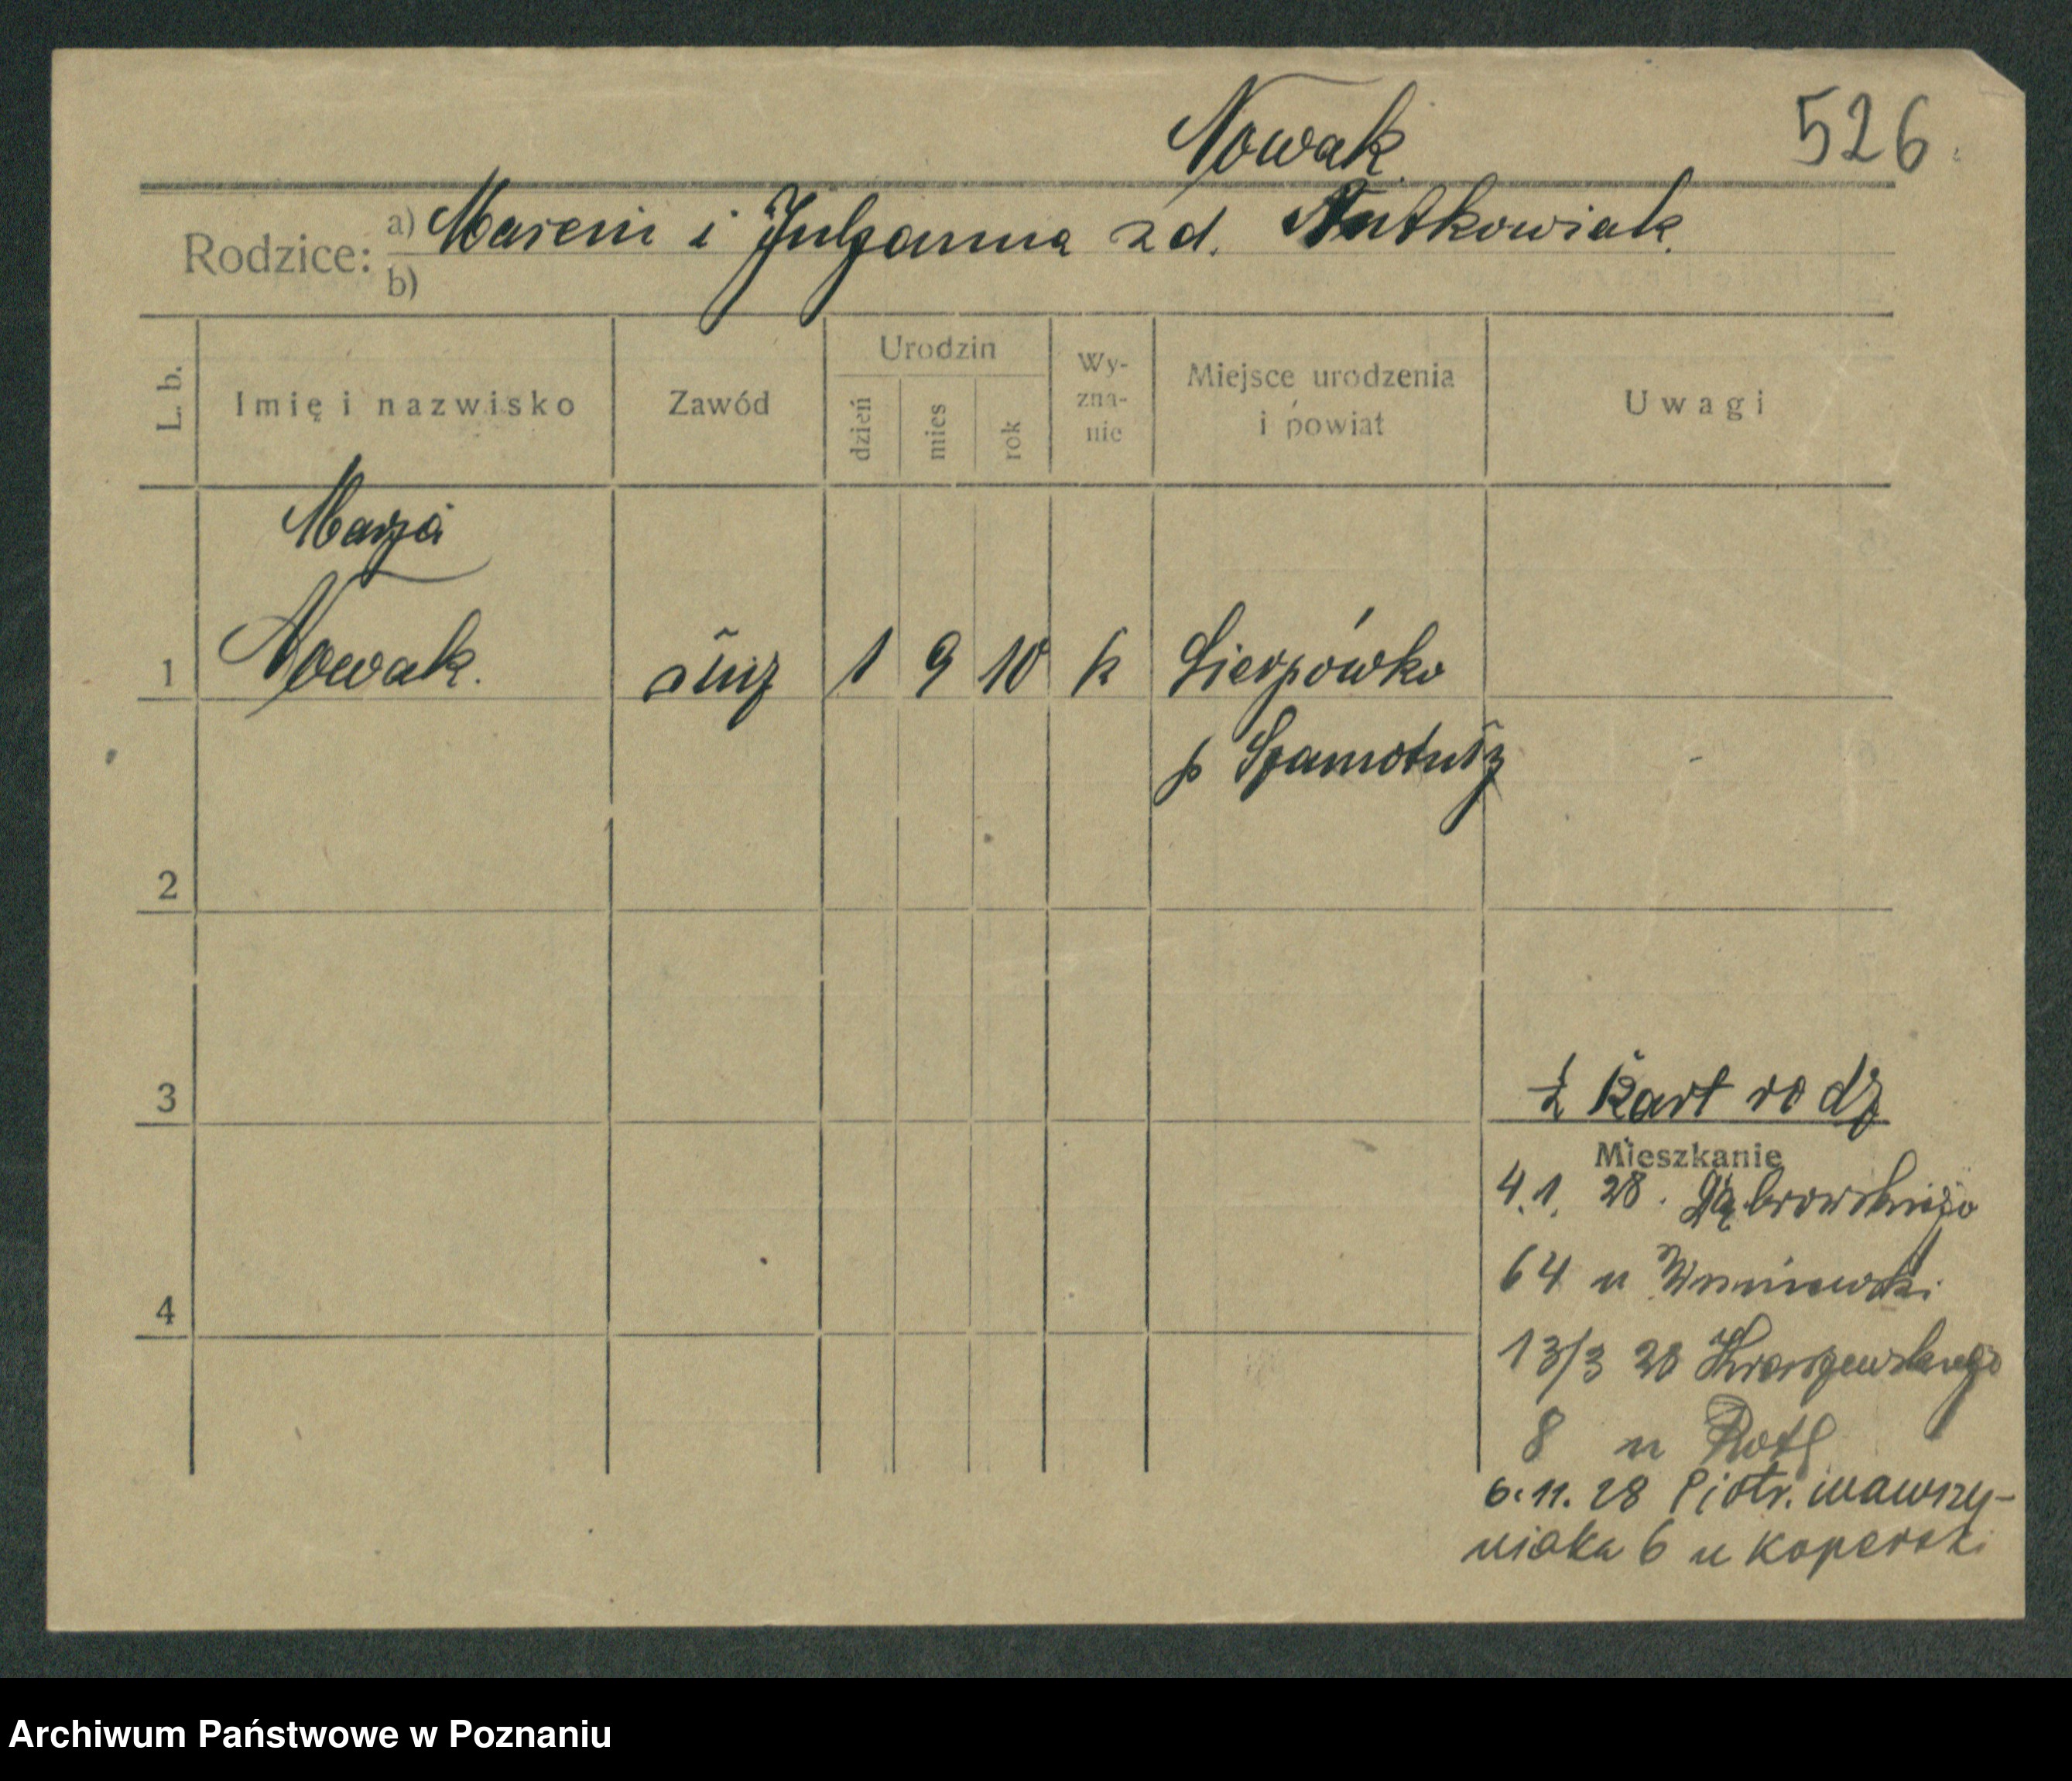 Nowak
526
Rodzice: a) Marcin i Julganna zd. Antkowiak
b)
L. b.
Imię i nazwisko
Zawód
Urodzin
dzień
mies
rok
Wy-
zna-
nie
Miejsce urodzenia
i powiat
Uwagi
Marja
1 Nowak. służ 1 9 10 k Sierpówko
p Szamotuły
2
3
Kart rodz
Mieszkanie
4.1. 28. Dąbrowskiego
64 u Wiśniewski
4
13/3 28 Kraszewskiego
8 u Roth
6. 11. 28 Piotr. wawrzy-
niaka 6 u Koperski
Archiwum Państwowe w Poznaniu